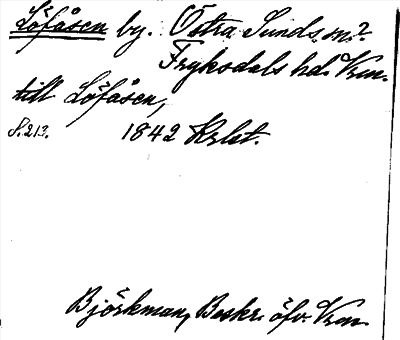 Löfåsen by. Östra Sunds sn?
Fryksdals hd. Vrm.
till Löfåsen,
S. 213. 1842 Krbt.
Björkman, Beskr. öfv. Vrm.